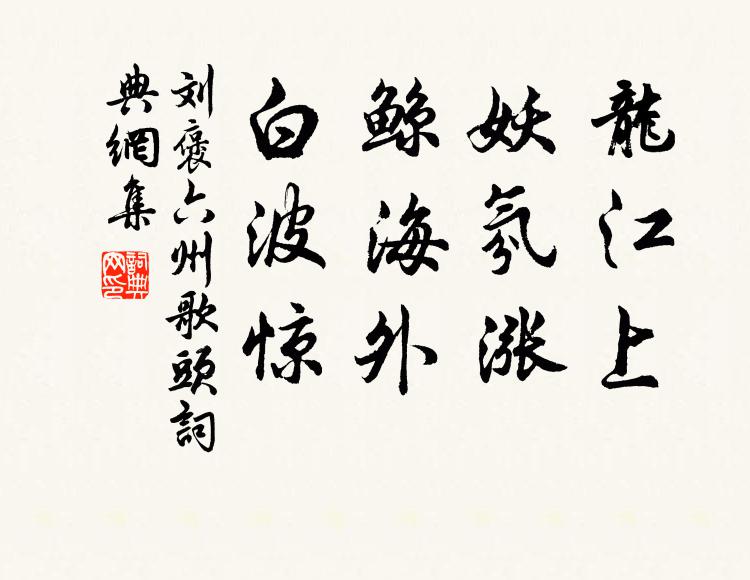 龍江上
妖氛漲
鲸海外
白波惊
刘褒六州歌頭詞
典網集
詞典
网印